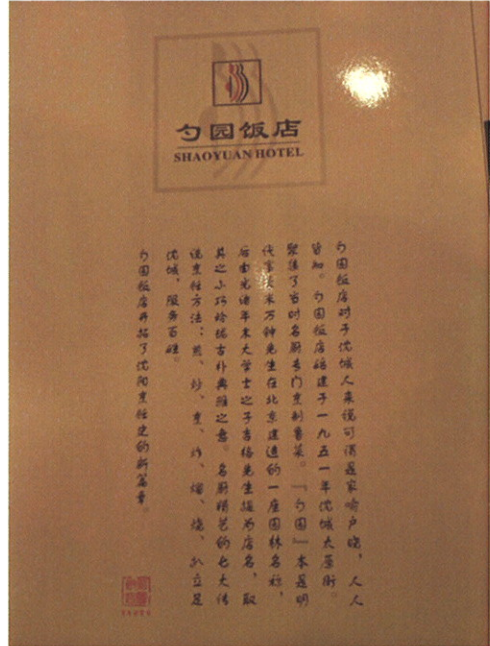 勺园饭店
SHAOYUAN HOTEL
勺园饭店对于沈城人来说可谓是家喻户晓，人人
皆知。勺园饭店始建于一九五一年沈城太原街。
聚集了当时名厨专门烹制鲁菜。『勺园』本是明
代官员米万钟先生在北京建造的一座园林名称，
后由光绪年末大学士之子吉绪先生提为店名，取
其之小巧玲珑古朴典雅之意。名厨精艺的七大传
统烹饪方法：煎、炒、烹、炸、熘、烧、扒立足
沈城，服务百姓。
勺园饭店开拓了沈阳烹饪史的新篇章。